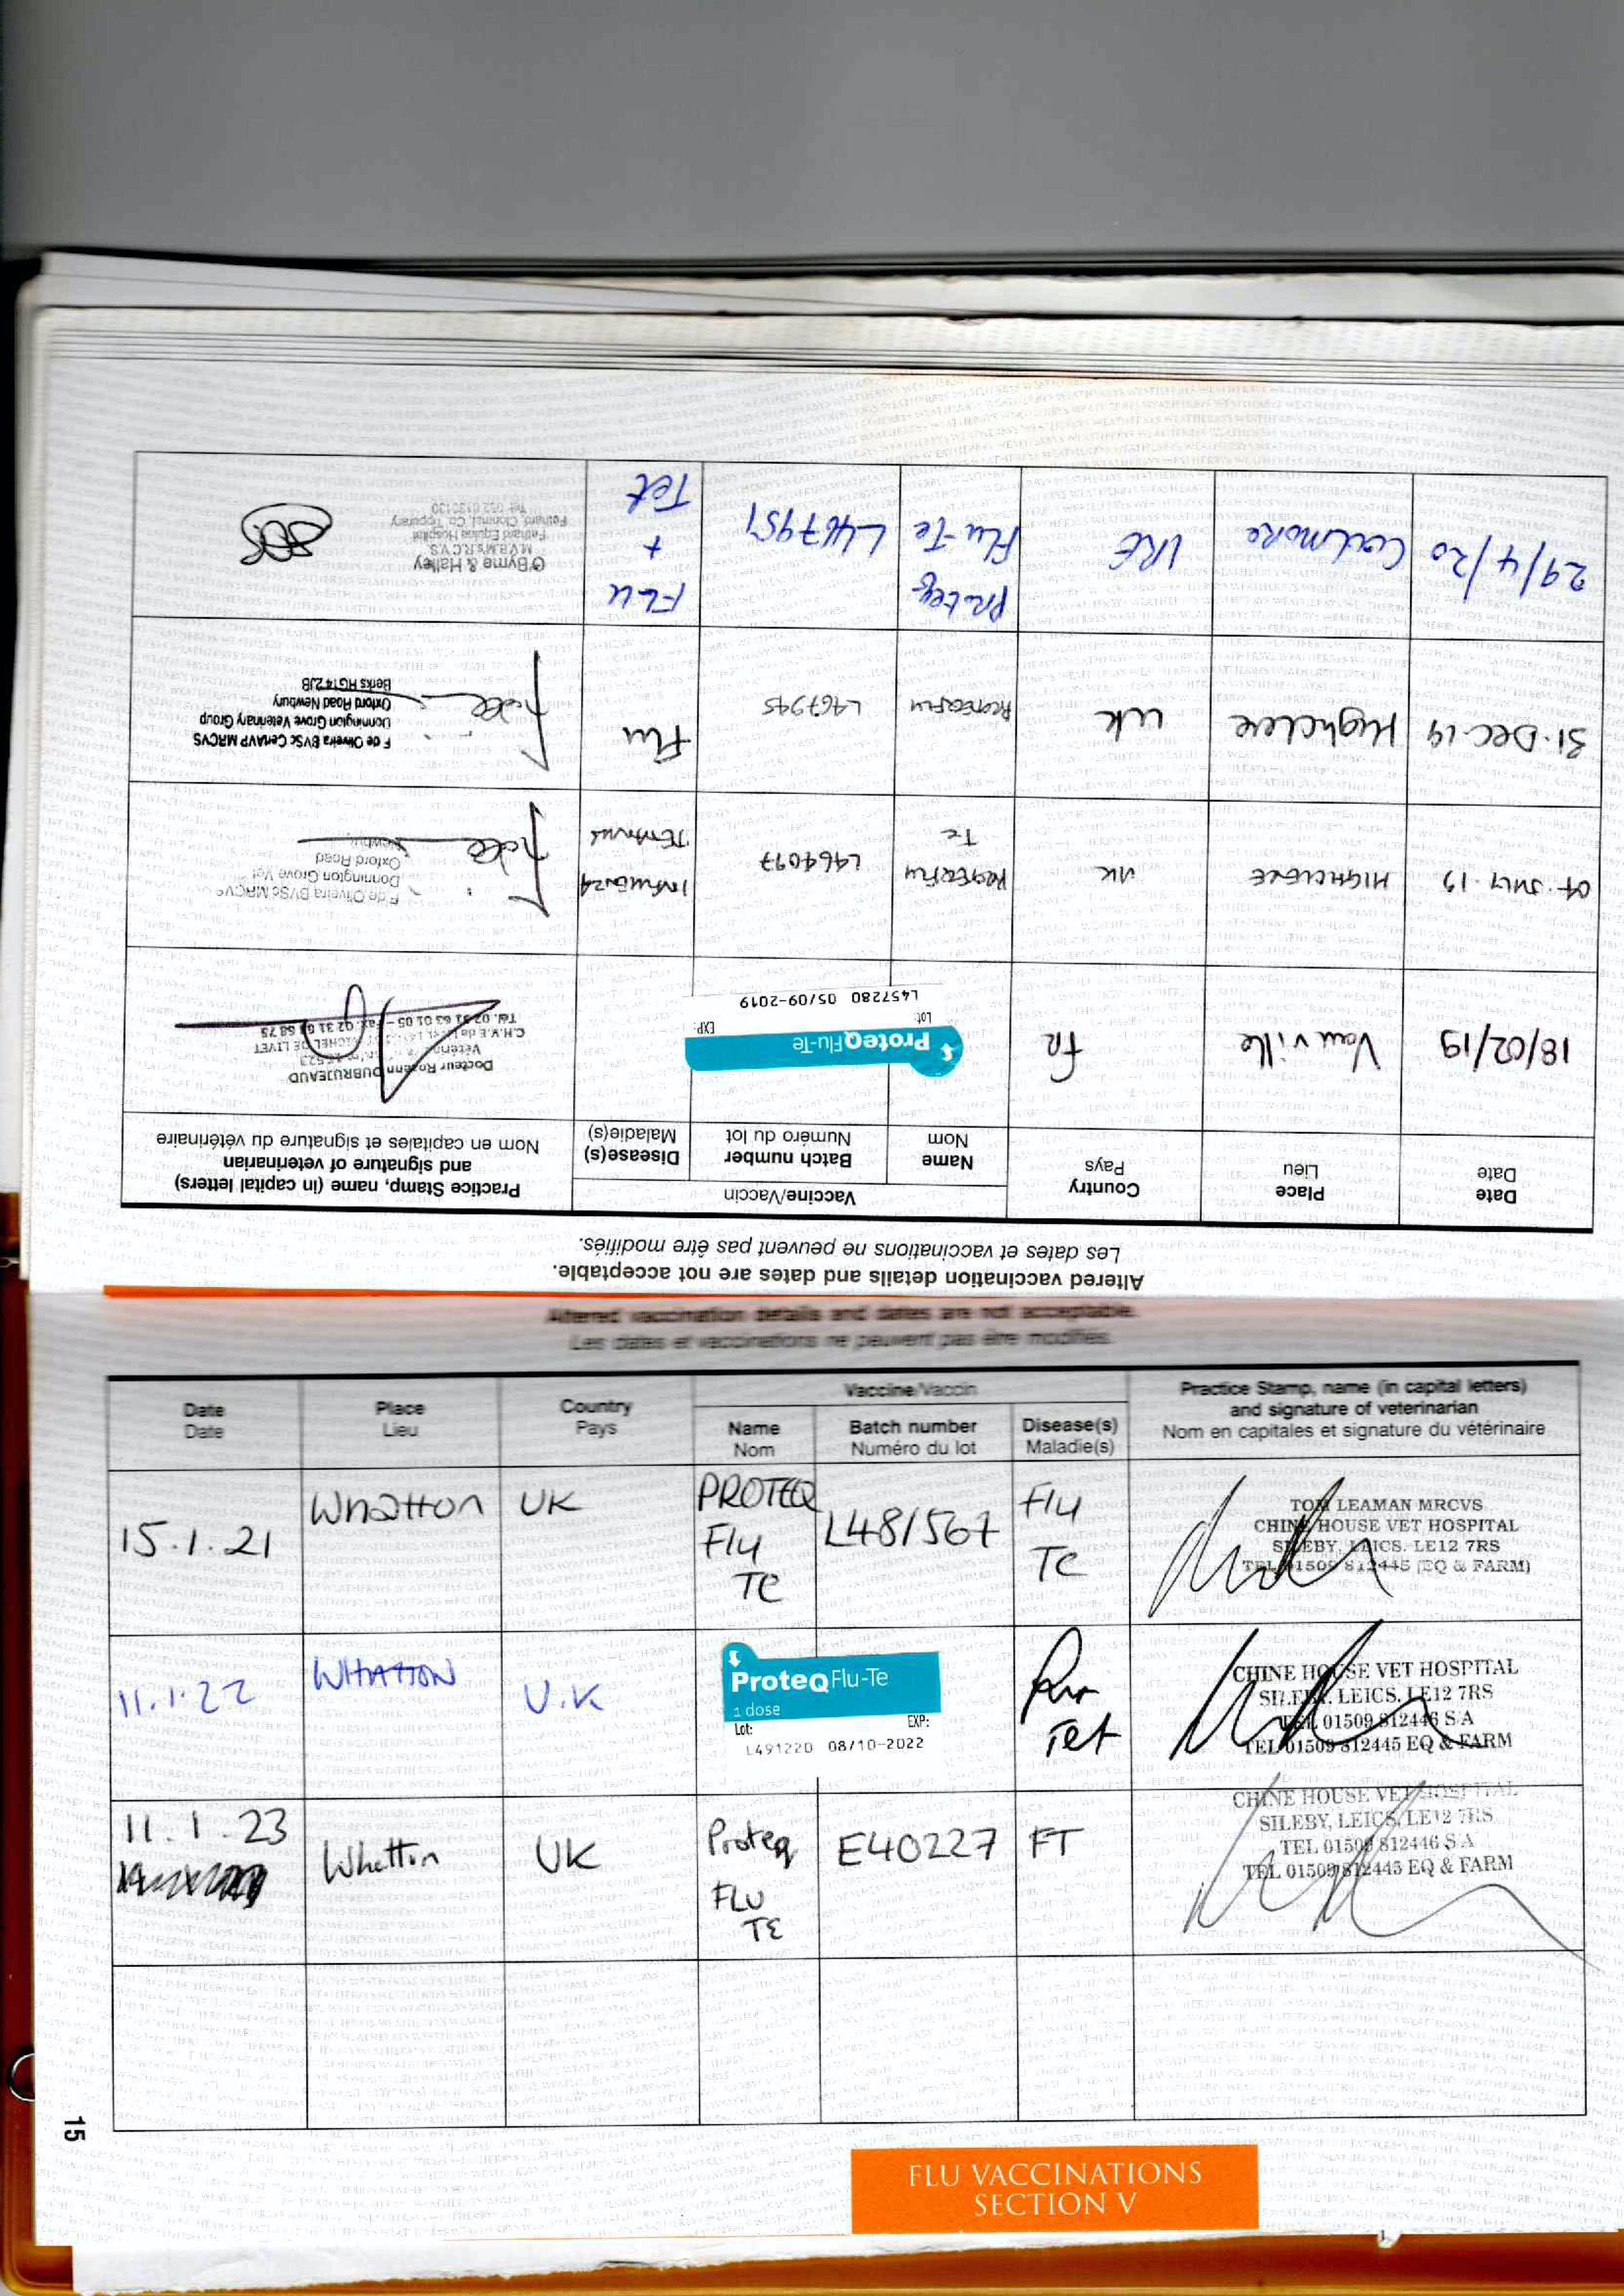 Altered vaccination details and dates are not acceptable.
Les dates et vaccinations ne peuvent pas être modifiés.
Date
Date
Place
Lieu
Country
Pays
Vaccine/Vaccin
Name
Nom
Batch number
Numéro du lot
Disease(s)
Maladie(s)
Practice Stamp, name (in capital letters)
and signature of veterinarian
Nom en capitales et signature du vétérinaire
18/02/19
Vauville
FR
ProteqFlu-Te
Lot:
EXP:
L457280 05/09-2019
Docteur Rozenn DUBRUJEAUD
04. JULY. 19
HIGHCLERE
UK
PROTEQFLU
Te
L464097
INFLUENZA
TETANUS
F de Oliveira BVSc MRCVS
Donnington Grove Vet
Oxford Road
31. Dec. 19
Highclere
UK
PROTEQFLU
L467945
Flu
F de Oliveira BVSc CertAVP MRCVS
Donnington Grove Veterinary Group
Oxford Road Newbury
Berks RG14 2JB
29/4/20
Coolmore
IRE
Proteq
Flu-Te
L467951
FLU
+
Tet
O'Byrne & Halley
M.V.B. M.R.C.V.S.
Fethard Equine Hospital
Fethard, Clonmel, Co. Tipperary
Tel: 052 6130130
Altered vaccination details and dates are not acceptable.
Les dates et vaccinations ne peuvent pas être modifiés.
Date
Date
Place
Lieu
Country
Pays
Vaccine/Vaccin
Name
Nom
Batch number
Numéro du lot
Disease(s)
Maladie(s)
Practice Stamp, name (in capital letters)
and signature of veterinarian
Nom en capitales et signature du vétérinaire
15.1.21
Whatton
UK
PROTEQ
Flu
TE
L481567
Flu
Te
TOM LEAMAN MRCVS
CHINE HOUSE VET HOSPITAL
SILEBY, LEICS. LE12 7RS
TEL 01509 812445 (EQ & FARM)
11.1.22
WHATTON
U.K
ProteqFlu-Te
1 dose
Lot:
EXP:
L491220 08/10-2022
Flu
Tet
CHINE HOUSE VET HOSPITAL
SILEBY, LEICS. LE12 7RS
TEL 01509 812446 S/A
TEL 01509 812445 EQ & FARM
11.1.23
Whatton
UK
Proteq
FLU
TE
E40227
FT
CHINE HOUSE VET HOSPITAL
SILEBY, LEICS. LE12 7RS
TEL 01509 812446 S/A
TEL 01509 812445 EQ & FARM
15
FLU VACCINATIONS
SECTION V